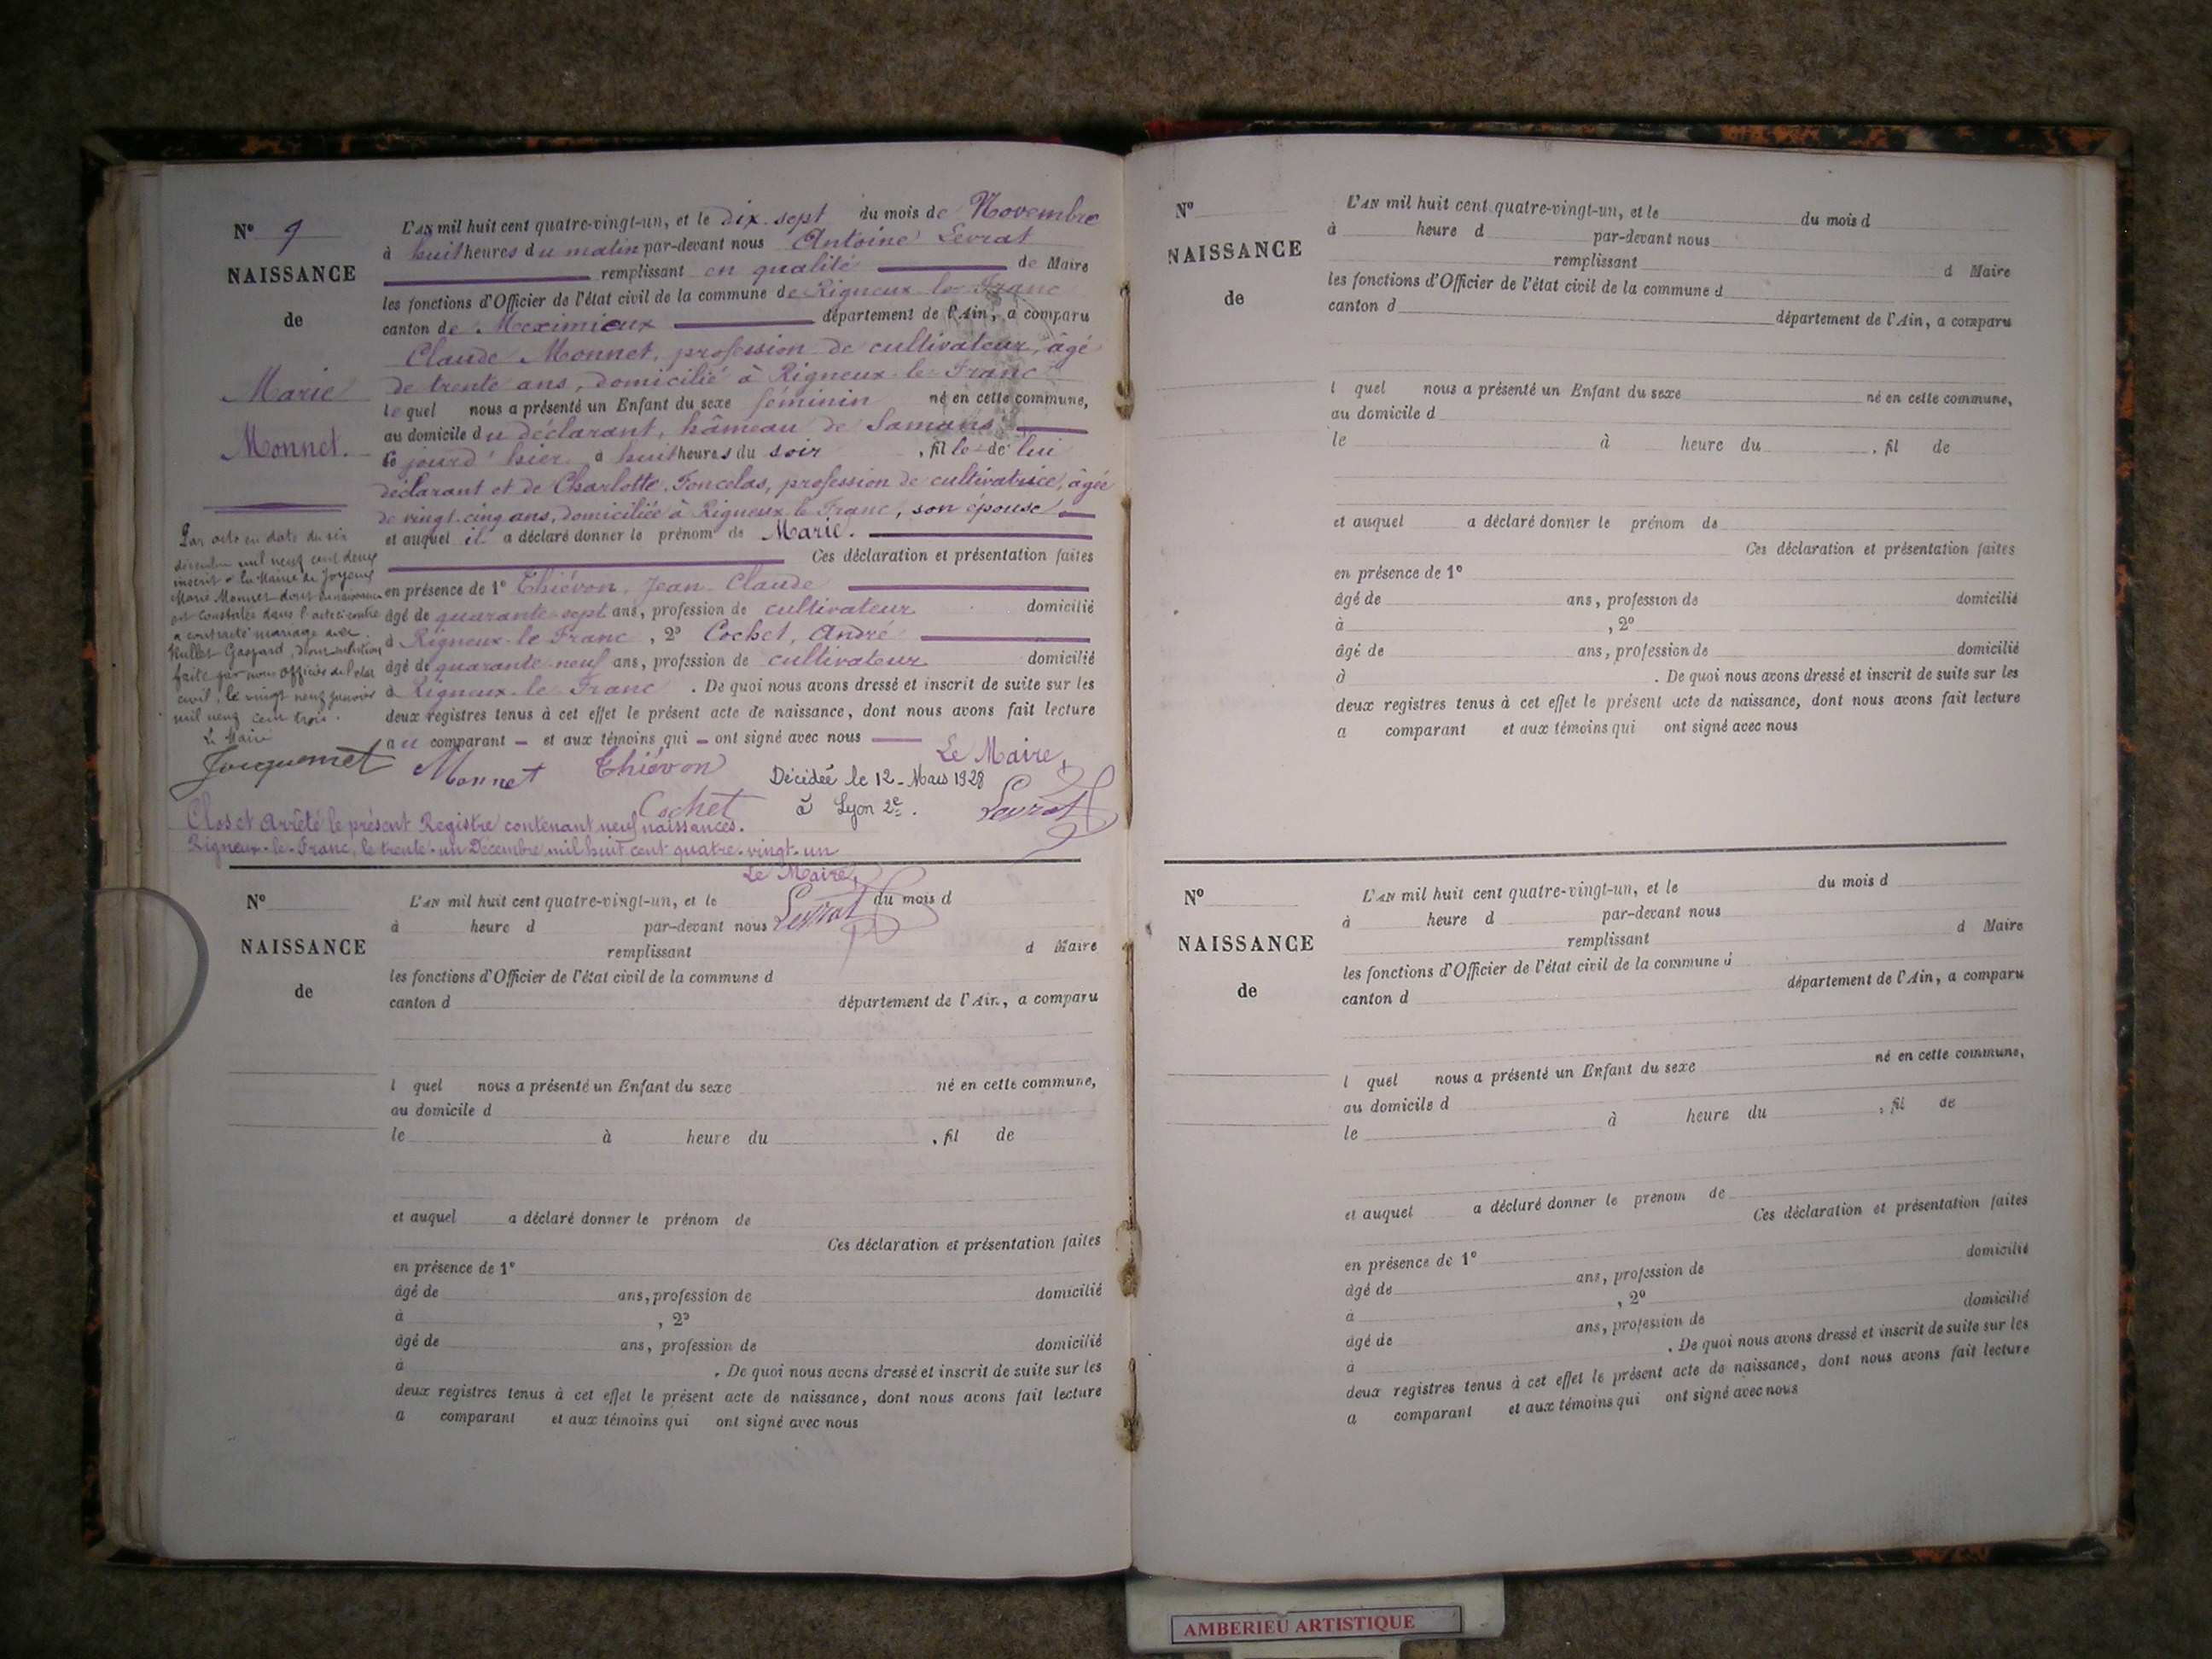 N° 9
NAISSANCE
de
Marie
Monnet.
L'AN mil huit cent quatre-vingt-un, et le dix-sept du mois de Novembre
à huit heures du matin par-devant nous Antoine Levrat
remplissant en qualité de Maire
les fonctions d'Officier de l'état civil de la commune de Rigneux-le-Franc
canton de Meximieux département de l'Ain, a comparu
Claude Monnet, profession de cultivateur, âgé
de trente ans, domicilié à Rigneux-le-Franc
lequel nous a présenté un Enfant du sexe féminin né en cette commune,
au domicile du déclarant, hâmeau de Samans
le jourd'hier à huit heures du soir, fille de lui
déclarant et de Charlotte Foncelas, profession de cultivatrice, âgée
de vingt-cinq ans, domiciliée à Rigneux-le-Franc, son épouse
et auquel il a déclaré donner le prénom de Marie.
Ces déclaration et présentation faites
en présence de 1° Thiévon, Jean-Claude
âgé de quarante-sept ans, profession de cultivateur domicilié
à Rigneux-le-Franc, 2° Cochet, André
âgé de quarante-neuf ans, profession de cultivateur domicilié
à Rigneux-le-Franc. De quoi nous avons dressé et inscrit de suite sur les
deux registres tenus à cet effet le présent acte de naissance, dont nous avons fait lecture
au comparant — et aux témoins qui — ont signé avec nous —
Par acte en date du six
décembre mil neuf cent deux
inscrit à la Mairie de Joyeux
Marie Monnet dont la naissance
est constatée dans l'acte ci-contre
a contracté mariage avec
Gaspard, dont mention
faite par nous officier de l'état
civil, le vingt neuf janvier
mil neuf cent trois.
Le Maire
Jacquemet
Monnet Thiévon Le Maire,
Décidée le 12-Mars 1928
Cochet à Lyon 2e. Levrat
Clos et Arrêté le présent Registre contenant neuf naissances.
Rigneux-le-Franc, le trente-un Décembre mil huit cent quatre-vingt-un
Le Maire,
Levrat
N°
NAISSANCE
de
L'AN mil huit cent quatre-vingt-un, et le du mois d
à heure d par-devant nous
remplissant d Maire
les fonctions d'Officier de l'état civil de la commune d
canton d département de l'Ain, a comparu
l quel nous a présenté un Enfant du sexe né en cette commune,
au domicile d
le à heure du , fil de
et auquel a déclaré donner le prénom de
Ces déclaration et présentation faites
en présence de 1°
âgé de ans, profession de domicilié
à , 2°
âgé de ans, profession de domicilié
à . De quoi nous avons dressé et inscrit de suite sur les
deux registres tenus à cet effet le présent acte de naissance, dont nous avons fait lecture
a comparant et aux témoins qui ont signé avec nous
N°
NAISSANCE
de
L'AN mil huit cent quatre-vingt-un, et le du mois d
à heure d par-devant nous
remplissant d Maire
les fonctions d'Officier de l'état civil de la commune d
canton d département de l'Ain, a comparu
l quel nous a présenté un Enfant du sexe né en cette commune,
au domicile d
le à heure du , fil de
et auquel a déclaré donner le prénom de
Ces déclaration et présentation faites
en présence de 1°
âgé de ans, profession de domicilié
à , 2°
âgé de ans, profession de domicilié
à . De quoi nous avons dressé et inscrit de suite sur les
deux registres tenus à cet effet le présent acte de naissance, dont nous avons fait lecture
a comparant et aux témoins qui ont signé avec nous
N°
NAISSANCE
de
L'AN mil huit cent quatre-vingt-un, et le du mois d
à heure d par-devant nous
remplissant d Maire
les fonctions d'Officier de l'état civil de la commune d
canton d département de l'Ain, a comparu
l quel nous a présenté un Enfant du sexe né en cette commune,
au domicile d
le à heure du , fil de
et auquel a déclaré donner le prénom de
Ces déclaration et présentation faites
en présence de 1°
âgé de ans, profession de domicilié
à , 2°
âgé de ans, profession de domicilié
à . De quoi nous avons dressé et inscrit de suite sur les
deux registres tenus à cet effet le présent acte de naissance, dont nous avons fait lecture
a comparant et aux témoins qui ont signé avec nous
AMBERIEU ARTISTIQUE